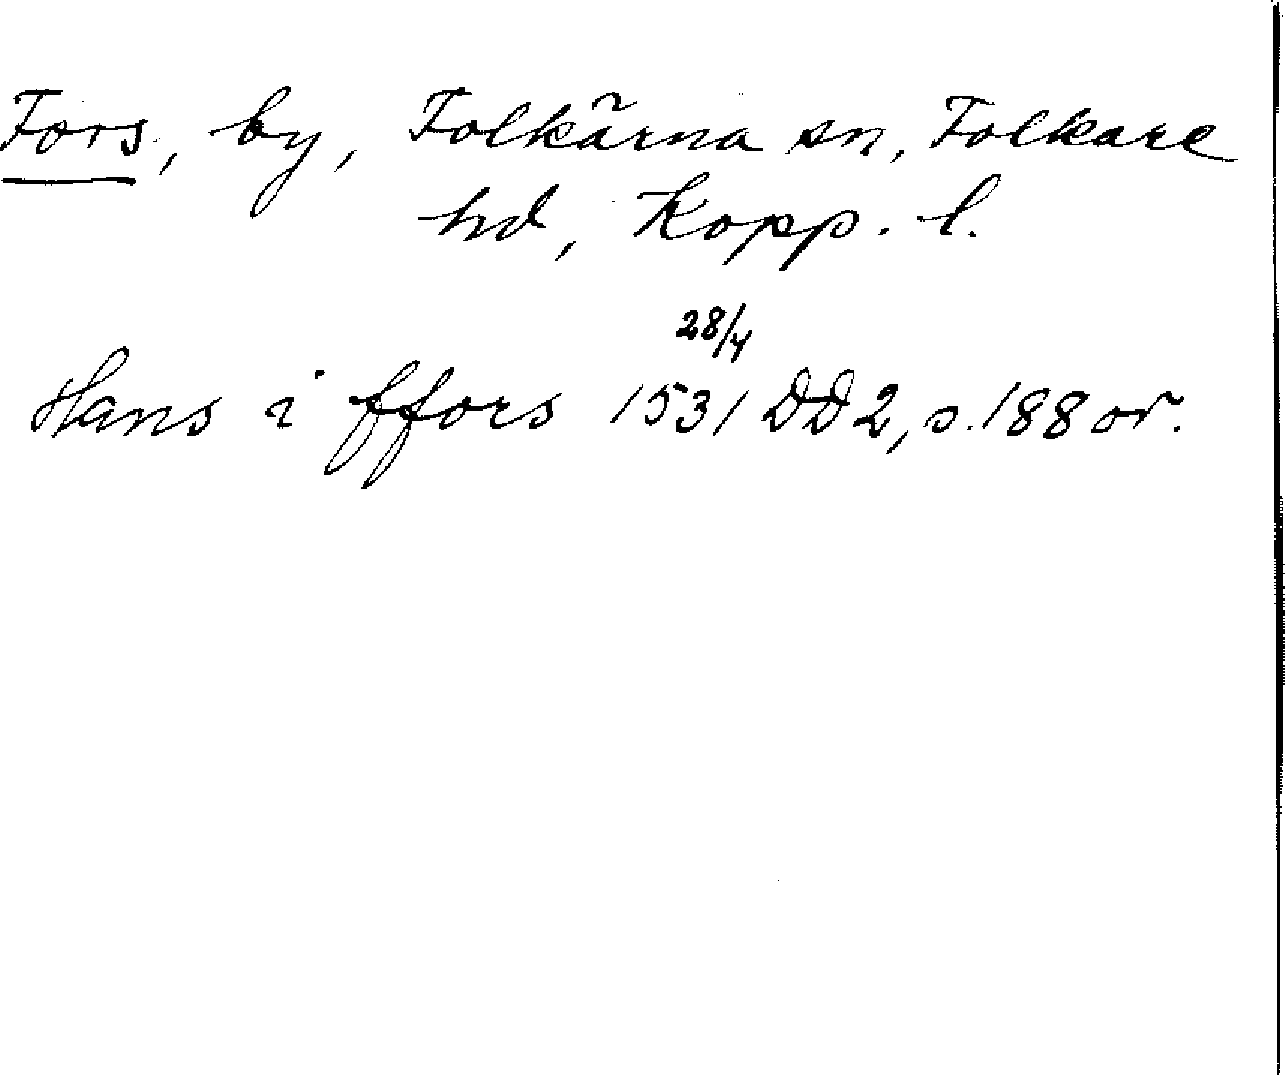 Fors, by, Folkärna sn, Folkare
hd, Kopp. l.
28/4
Hans i ffors 1531 DD2, s. 188 or.